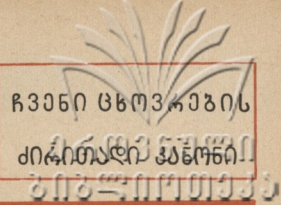 ჩვენი ცხოვრების
ძირითადი კანონი
ეროვნული
ბიბლიოთეკა